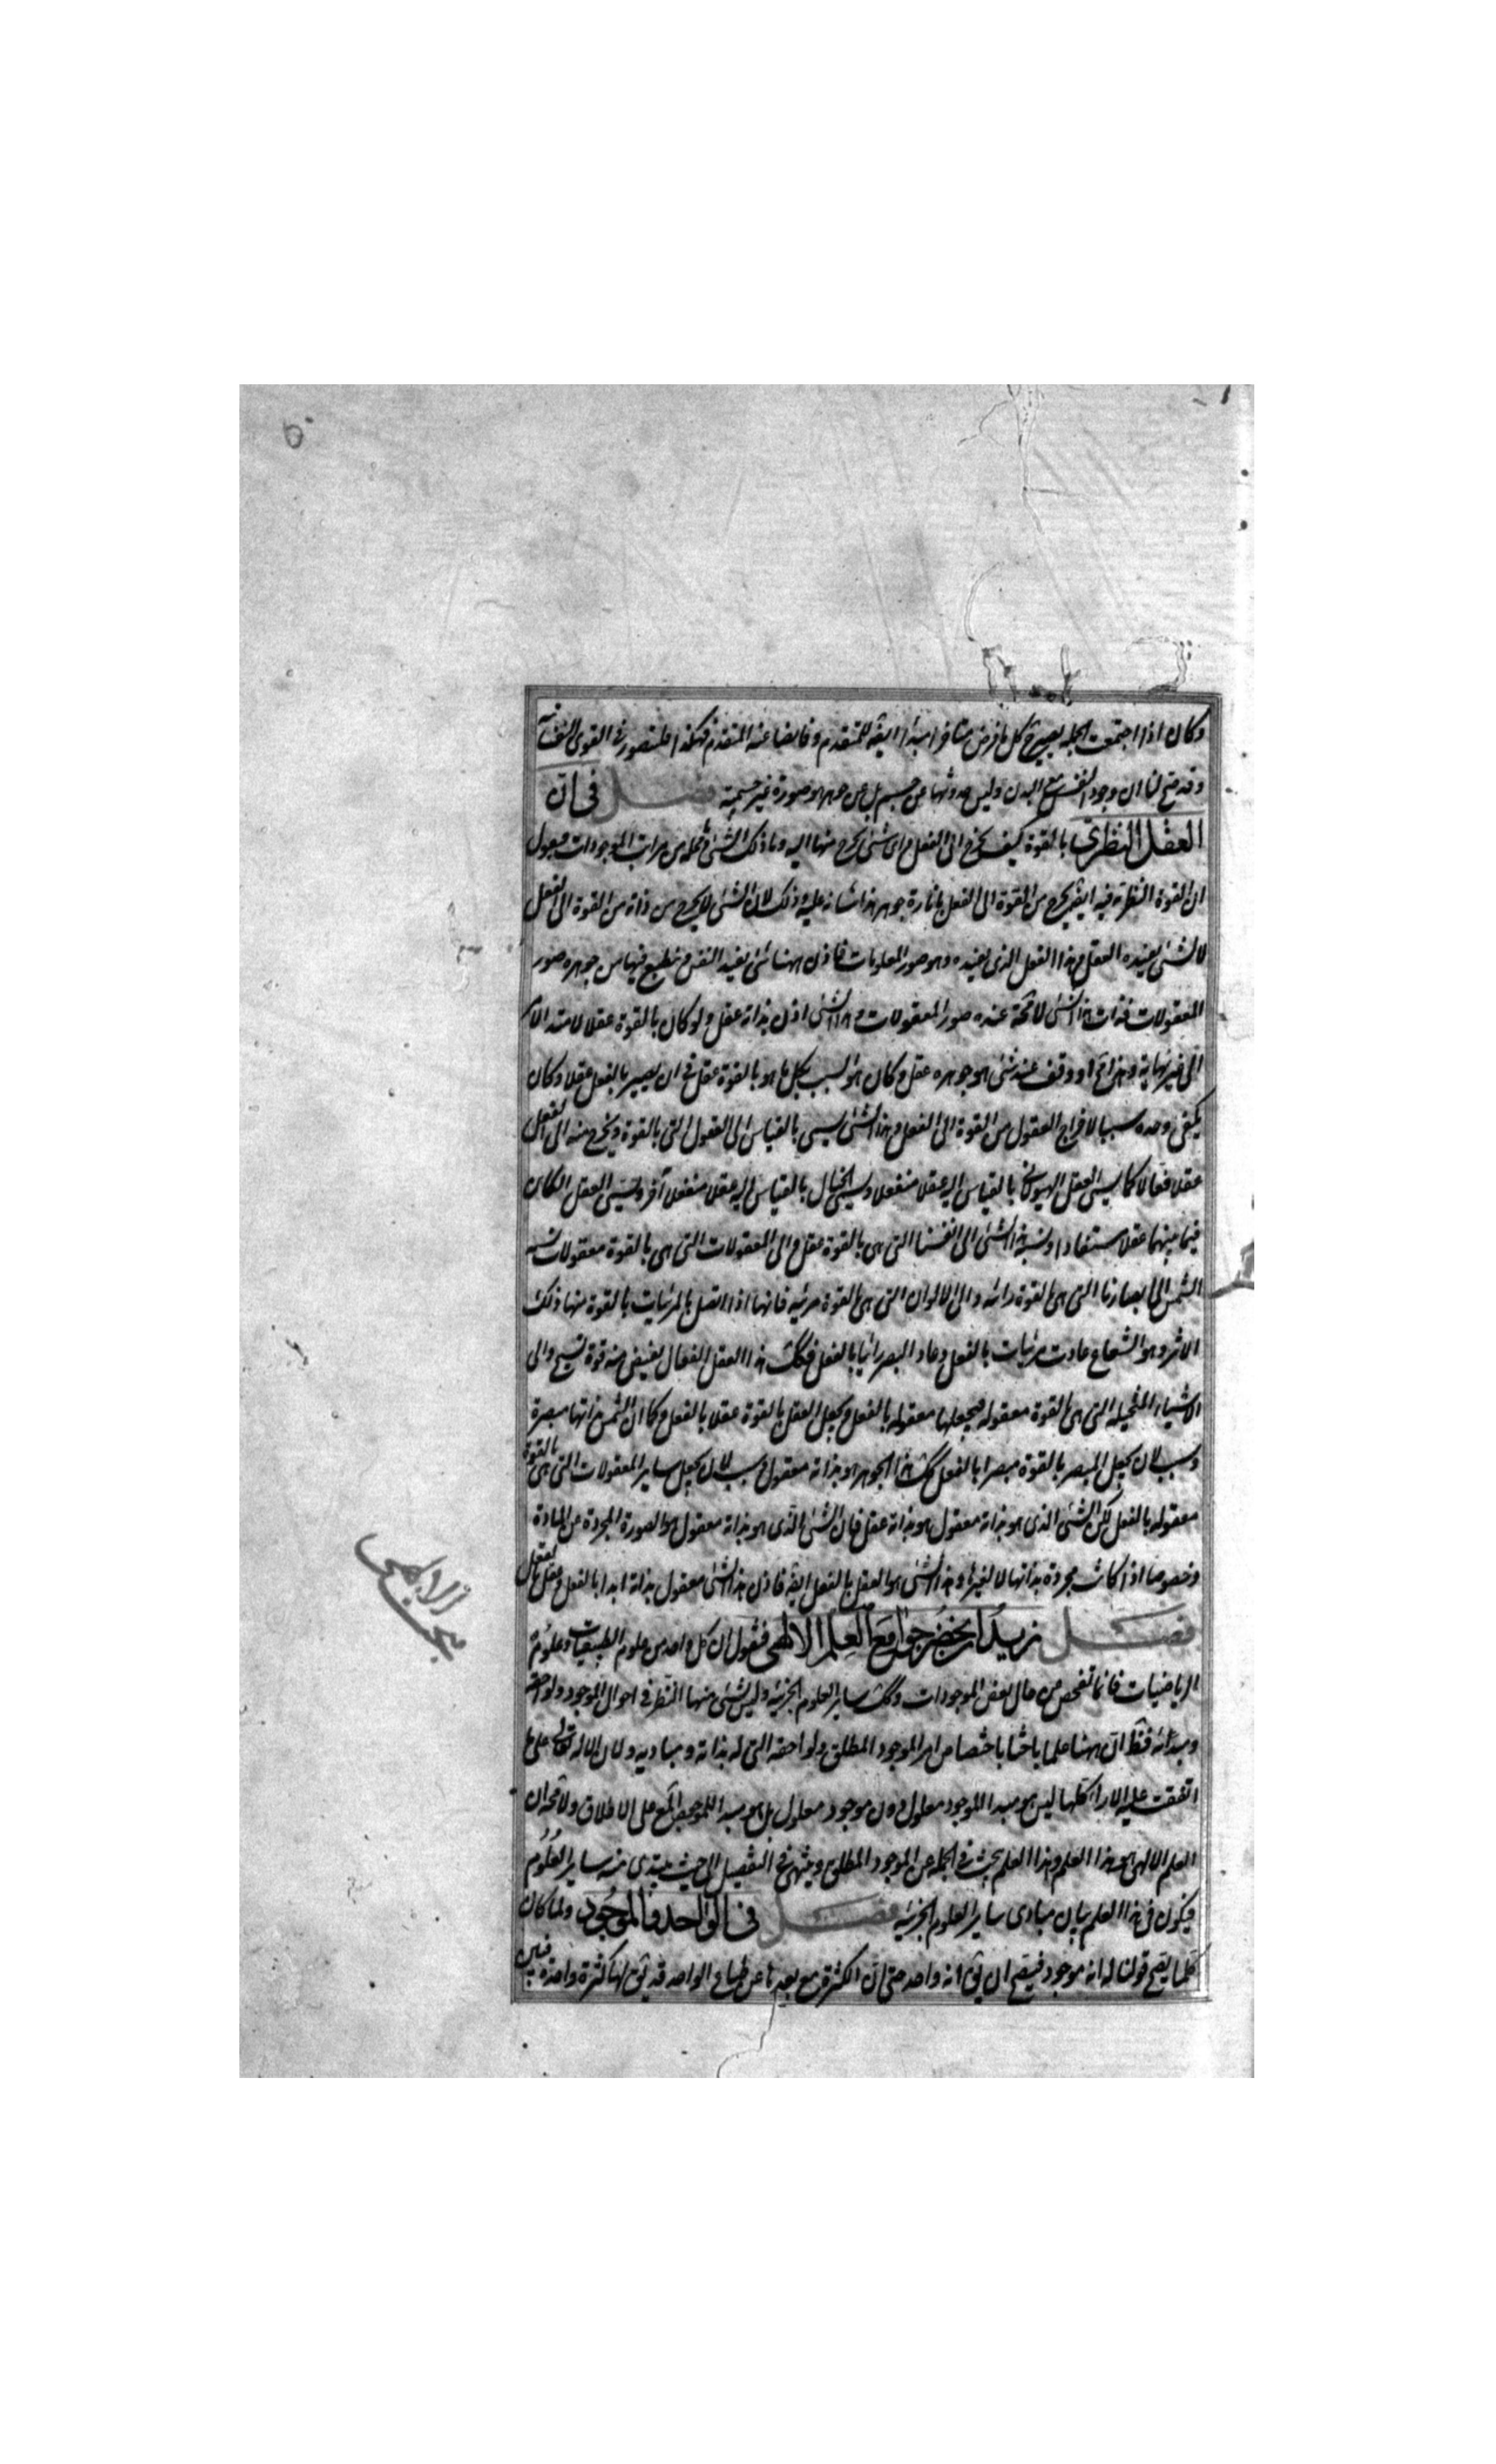 وكان اذا اجتمعت الجمله يصير كل ما فرض متاخرا مبدأ ايضه للمتقدم وفايضا عنه المتقدم فهكذا فلنتصور فى القوى النفسانيه
وقد صح لنا ان وجود النفس مع البدن وليس حدوثها عن جسم بل عن جوهر هو صورة غير جسمية فصل فى ان
العقل النظرى بالقوة كيف يخرج الى الفعل واى شئ يخرج منها اليه وما ذلك الشئ فى محله من مراتب الموجودات فيقول
ان القوة النظريه فيه ايضه يخرج من القوة الى الفعل بانارة جوهر هذا شانه عليه وذلك لان الشئ لا يخرج من ذاته من القوة الى الفعل
لا لشئ يفيده الفعل وهذا الفعل الذى يفيده هو صور المعلومات فاذن ههنا شئ يفيد النفس ويطبع فيها من جوهره صور
المعقولات فذات هذا الشئ لا محه عنده صور المعقولات وهذا الشئ اذن بذاته عقل ولو كان بالقوة عقلا لامتد الامر
الى غير نهاية وهذا مح او وقف عند شئ هو جوهره عقل وكان هو السبب لكل ما هو بالقوة عقل فى ان يصير بالفعل عقلا وكان
يكفى وحده سببا لاخراج العقول من القوة الى الفعل وهذا الشئ يسمى بالقياس الى العقول التى بالقوة ويخرج منه الى الفعل
عقلا فعالا كما يسمى العقل الهيولانى بالقياس اليه عقلا منفعلا ويسمى الخيال بالقياس اليه عقلا منفعلا آخر ويسمى العقل الكائن
فيما بينهما عقلا مستفادا ونسبة هذا الشئ الى انفسنا التى هى بالقوة عقل والى المعقولات التى هى بالقوة معقولات نسبه
الشمس الى ابصارنا التى هى بالقوة رائه والى الالوان التى هى بالقوة مرئيه فانها اذا اتصل بالمرئيات بالقوة منها ذلك
الاثر وهو الشعاع عادت مرئيات بالفعل وعاد البصر رائيا بالفعل فكك هذا العقل الفعال يفيض منه قوة تسيح والى
الاشياء المتخيله التى هى بالقوة معقوله فيجعلها معقوله بالفعل ويجعل العقل بالقوة عقلا بالفعل وكما ان الشمس بذاتها مبصرة
وسبب لان يجعل المبصر بالقوة مبصرا بالفعل كك هذا الجوهر هو بذاته معقول وسبب لان يجعل ساير المعقولات التى هى بالقوة
معقوله بالفعل لكن الشئ الذى هو بذاته معقول هو بذاته عقل فان الشئ الذى هو بذاته معقول هو الصورة المجردة عن المادة
وخصوصا اذا كانت مجردة بذاتها لا لغيرها وهذا الشئ هو العقل بالفعل ايضه فاذن هذا الشئ معقول بذاته ابدا بالفعل وعقل بالفعل
فصل نريد ان نحصر جوامع العلم الالهى فنقول ان كل واحد من علوم الطبيعيات وعلوم
الرياضيات فانما تفحص عن حال بعض الموجودات وكك ساير العلوم الجزئيه وليس لشئ منها النظر فى احوال الموجود ولواحقه
ومبدأئه فظ ان ههنا علما باحثا باختصاص امر الموجود المطلق ولواحقه التى له بذاته ومباديه ولان الاله تعالى على ما
اتفقت عليه الارا كلها ليس هو مبدا للموجود معلول دون موجود معلول بل هو مبدا للموجود المع على الاطلاق ولا محه ان
العلم الالهى هو هذا العلم وهذا العلم يبحث فى الجمله عن الموجود المطلق وينتهى فى التفصيل الى حيث يبتدى منه ساير العلوم
فيكون فى هذا العلم بيان مبادى ساير العلوم الجزئيه فصل فى الواحد والموجود ولما كان
كلما يصح قولنا له انه موجود فيصح ان يق انه واحد حتى ان الكثرة مع بعدها عن طباع الواحد قد يق لها كثرة واحدة فبين